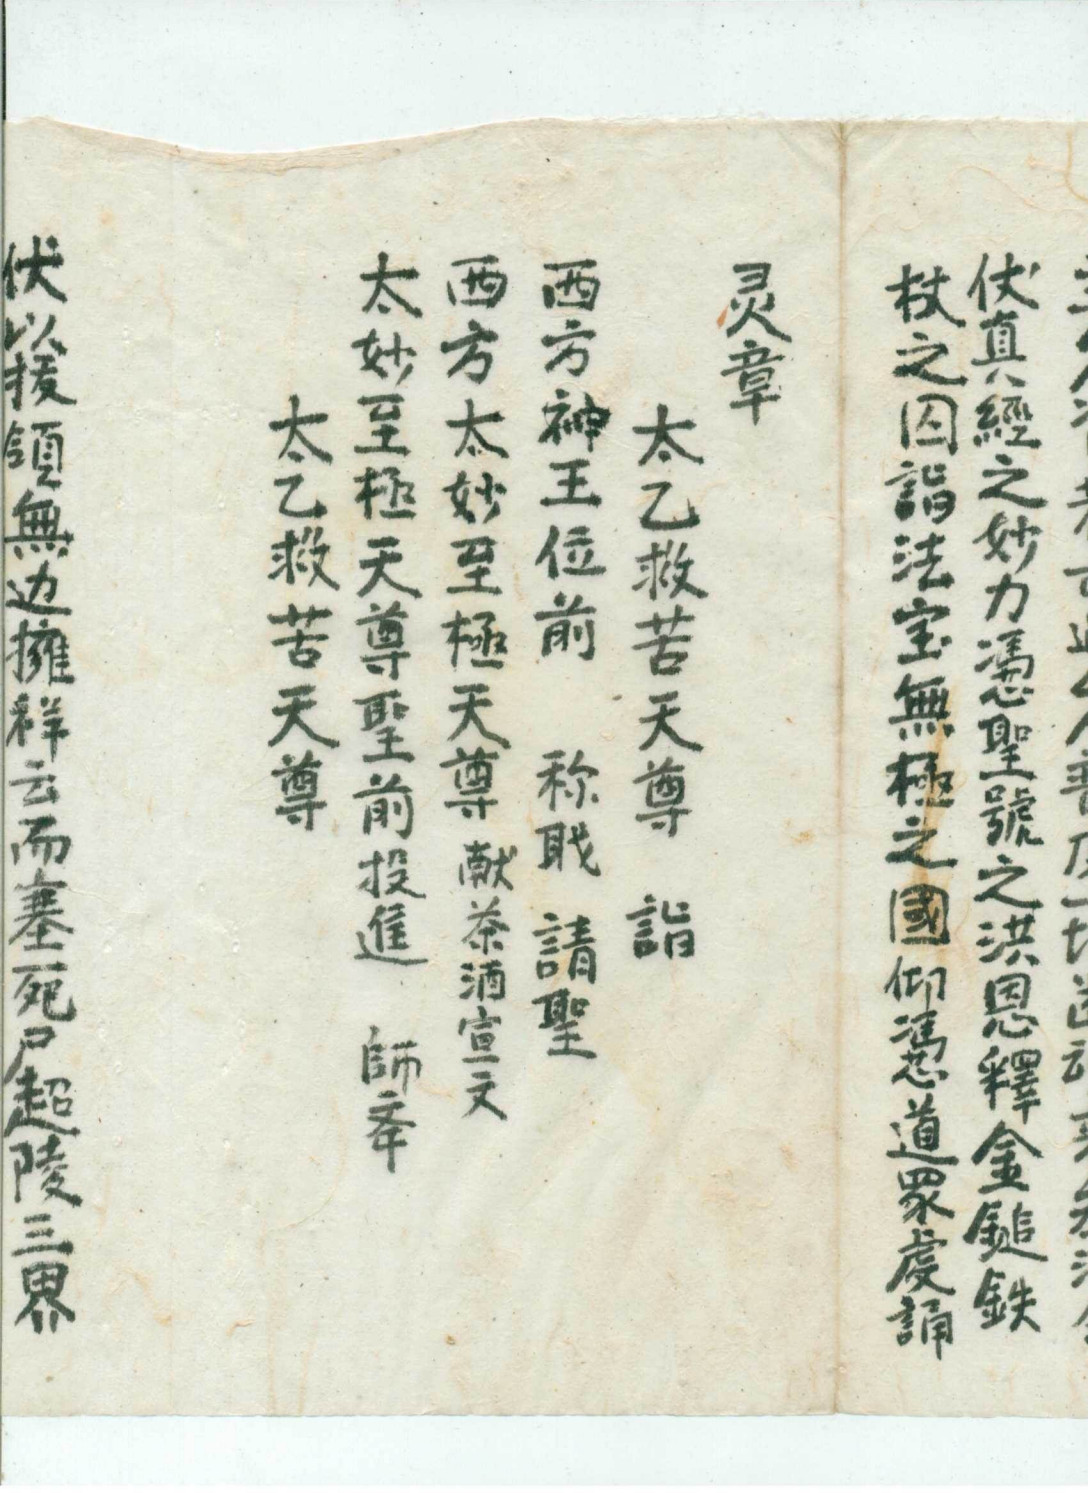 伏真經之妙力馮恩聖號之洪恩釋金鎚鉄
杖之囚詣法宝無極之國仰馮恩道眾虔誦
灵章
太乙救苦天尊 詣
西方神王位前 称职 請聖
西方太妙至極天尊献茶酒宣文
太妙至極天尊聖前投進 師斉
太乙救苦天尊
伏以援領無边擁祥云而塞死尸超陵三界